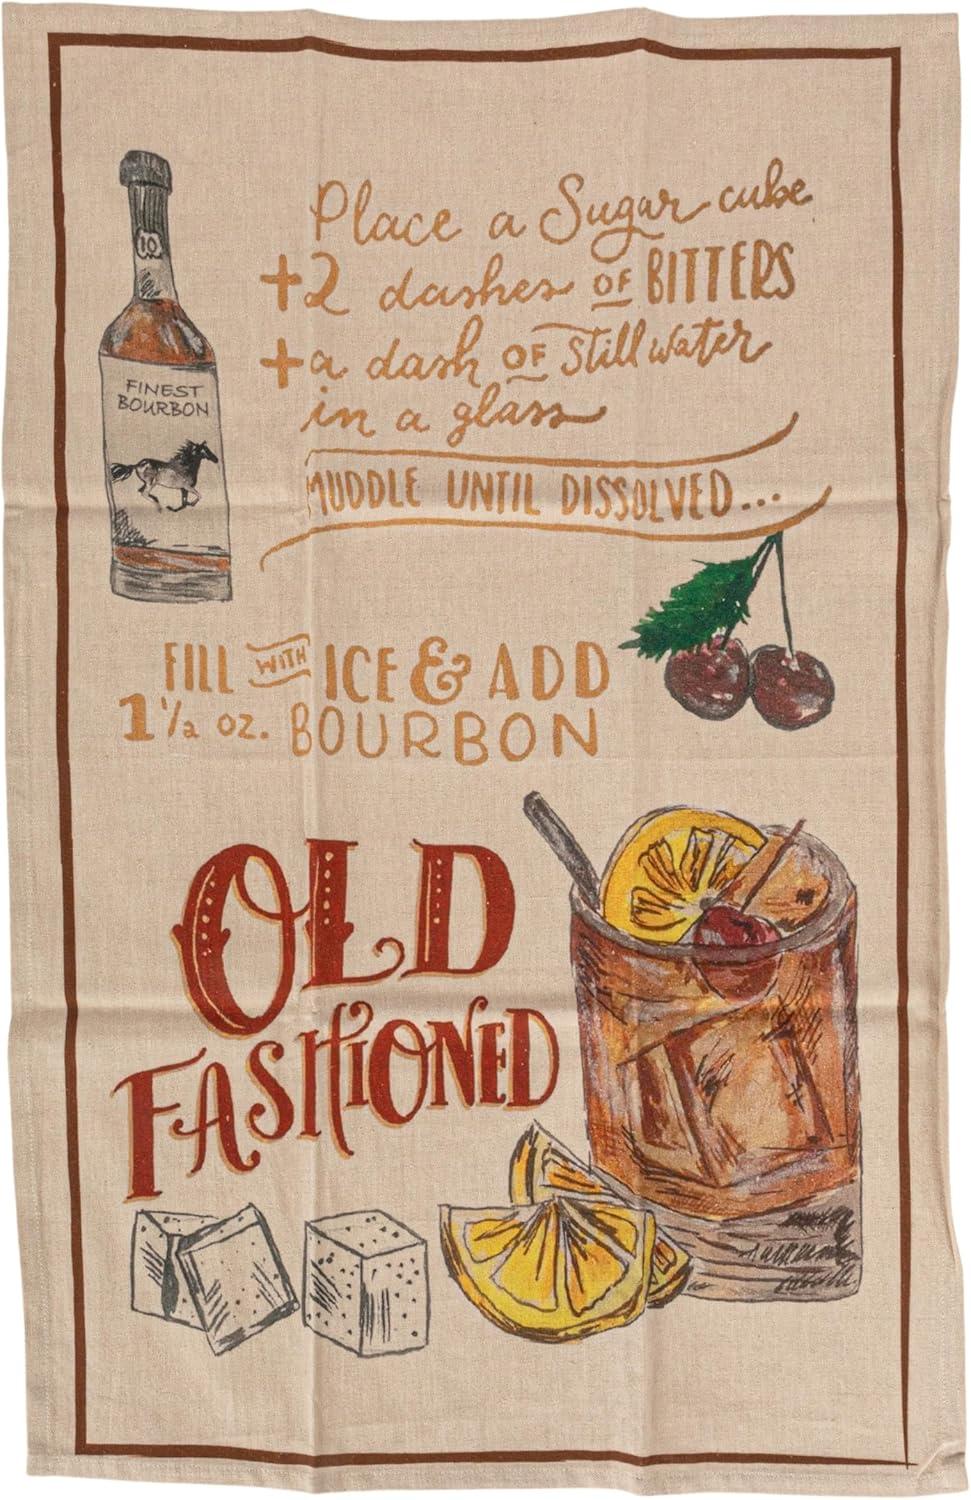 Place a Sugar cube
+2 dashes OF BITTERS
+a dash OF Still water
in a glass
MUDDLE UNTIL DISSOLVED...
10
FINEST
BOURBON
FILL WITH ICE & ADD
1 1/2 oz. BOURBON
OLD
FASHIONED